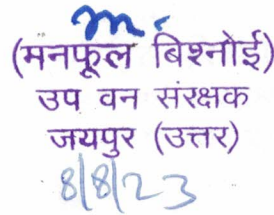 (मनफूल बिश्नोई)
उप वन संरक्षक
जयपुर (उत्तर)
8/8/23